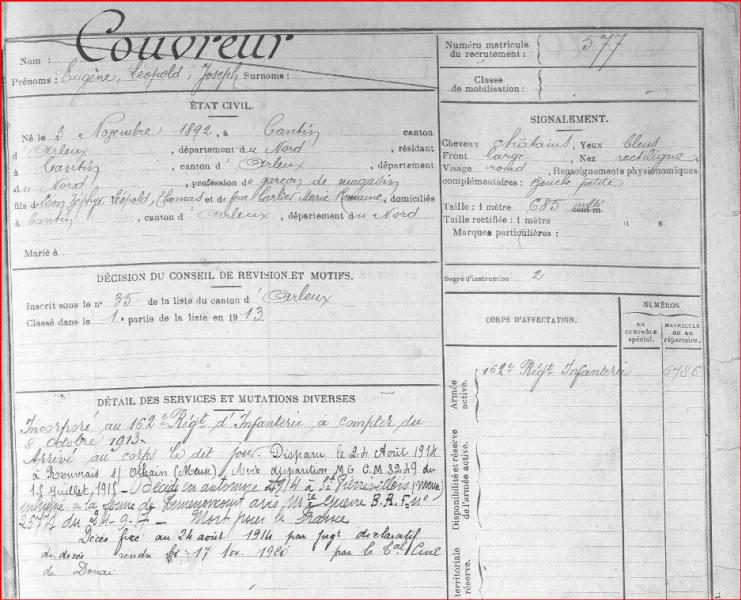 Nom : Couvreur
Prénoms : Eugène, Léopold, Joseph Surnoms :
Numéro matricule
du recrutement : 577
Classe
de mobilisation :
ÉTAT CIVIL.
Né le 2 Novembre 1892, à Cantin canton
d'Arleux, département du Nord, résidant
à Cantin, canton d'Arleux, département
du Nord, profession de garçon de magasin
fils de Léopold, Thomas et de feue Carlier Marie Romaine, domiciliés
à Cantin, canton d'Arleux, département du Nord
Marié à
SIGNALEMENT.
Cheveux châtains, Yeux bleus
Front large, Nez rectiligne
Visage rond, Renseignements physionomiques
complémentaires : Bouche petite
Taille : 1 mètre 685 cent m
Taille rectifiée : 1 mètre
Marques particulières :
DÉCISION DU CONSEIL DE REVISION ET MOTIFS.
Inscrit sous le nº 35 de la liste du canton d'Arleux
Classé dans la 1e partie de la liste en 1913.
Degré d'instruction 2
CORPS D'AFFECTATION.
NUMÉROS
AU
CONTRÔLE
SPÉCIAL.
MATRICULE
OU AU
RÉPERTOIRE.
Armée
active.
162e Régt Infanterie 6786
Disponibilité et réserve
de l'armée active.
territoriale
réserve.
DÉTAIL DES SERVICES ET MUTATIONS DIVERSES
Incorporé au 162e Régt d'Infanterie à compter du
8 Octobre 1913.
Arrivé au corps le dit jour. Disparu le 24 Août 1914
à (Meuse) Avis disparition M.G. C.M 3249 du
15 Juillet 1915 - Décédé en automne 1914 à St Pierrevillers (Meuse)
à la ferme de avis Mre Guerre B.R.F. nº
2577 du - Mort pour la France
Décès fixé au 24 août 1914 par jugt déclaratif
du décès rendu le 17 1920 par le Bal Civil
de Douai